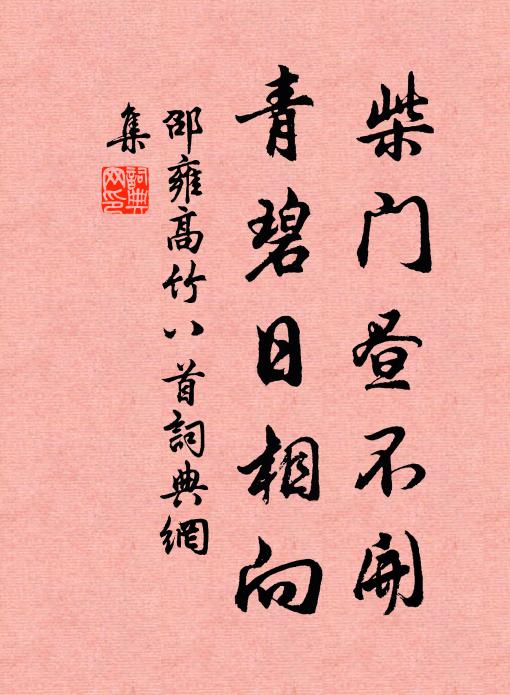 柴门昼不开
青碧日相向
邵雍高竹八首詞典網
集
詞典網印